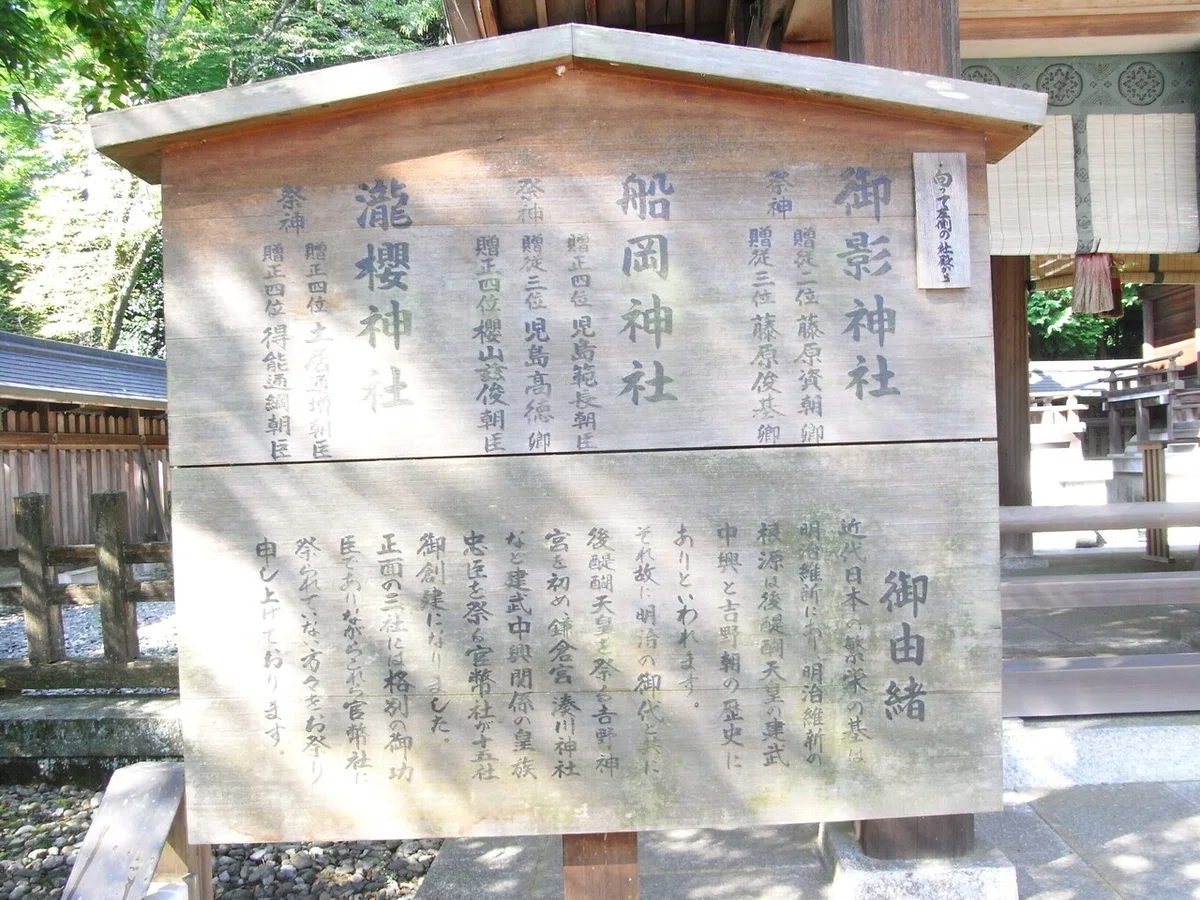 向って左側の社殿から
御影神社
祭神
贈従二位 藤原資朝卿
贈従三位 藤原俊基卿
船岡神社
祭神
贈正四位 児島範長朝臣
贈従三位 児島高徳卿
贈正四位 櫻山茲俊朝臣
瀧櫻神社
祭神
贈正四位 土居通増朝臣
贈正四位 得能通綱朝臣
御由緒
近代日本の繁栄の基は
明治維新にあり、明治維新の
根源は後醍醐天皇の建武
中興と吉野朝の歴史に
ありといわれます。
それ故に明治の御代と共に
後醍醐天皇を祭る吉野神
宮を初め鎌倉宮 湊川神社
など建武中興関係の皇族
忠臣を祭る官幣社が十五社
御創建になりました。
正面の三社には格別の御功
臣でありながらこれら官幣社に
祭られてない方々をお祭り
申し上げております。